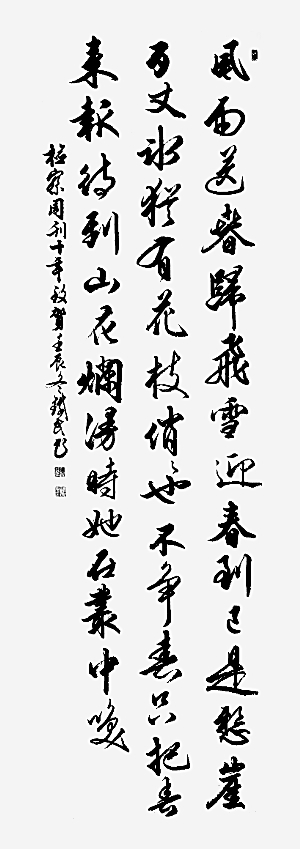 風雨送春歸飛雪迎春到已是懸崖
百丈冰猶有花枝俏〻也不争春只把春
来報待到山花爛漫時她在叢中咲
检察周刊十年致賀壬辰冬